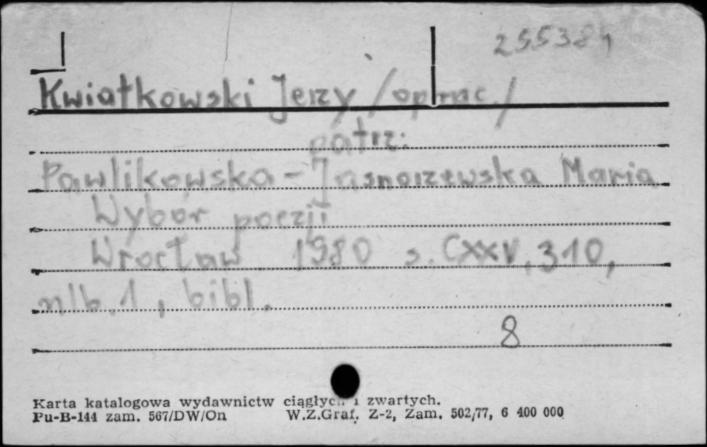 255384
Kwiatkowski Jerzy /oprac./
patrz:
Pawlikowska-Jasnorzewska Maria
Wybór poezji
Wrocław 1980 s. CXXV, 310,
nlb. 1, bibl.
8
Karta katalogowa wydawnictw ciągłych i zwartych.
Pu-B-144 zam. 567/DW/On W.Z.Graf. Z-2, Zam. 502/77, 6 400 000